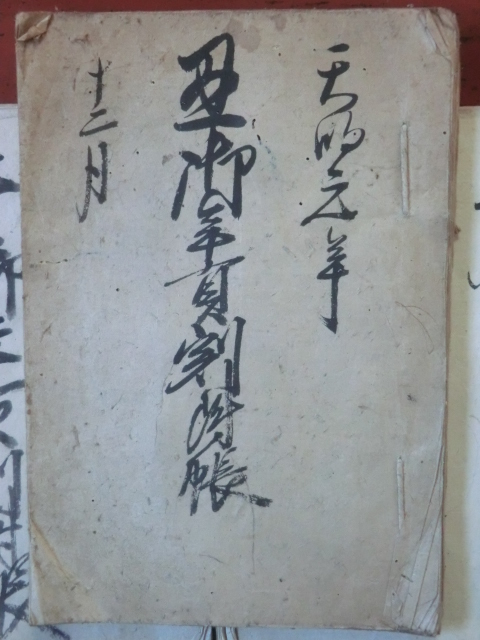 天明元年
丑御年貢割附帳
十二月